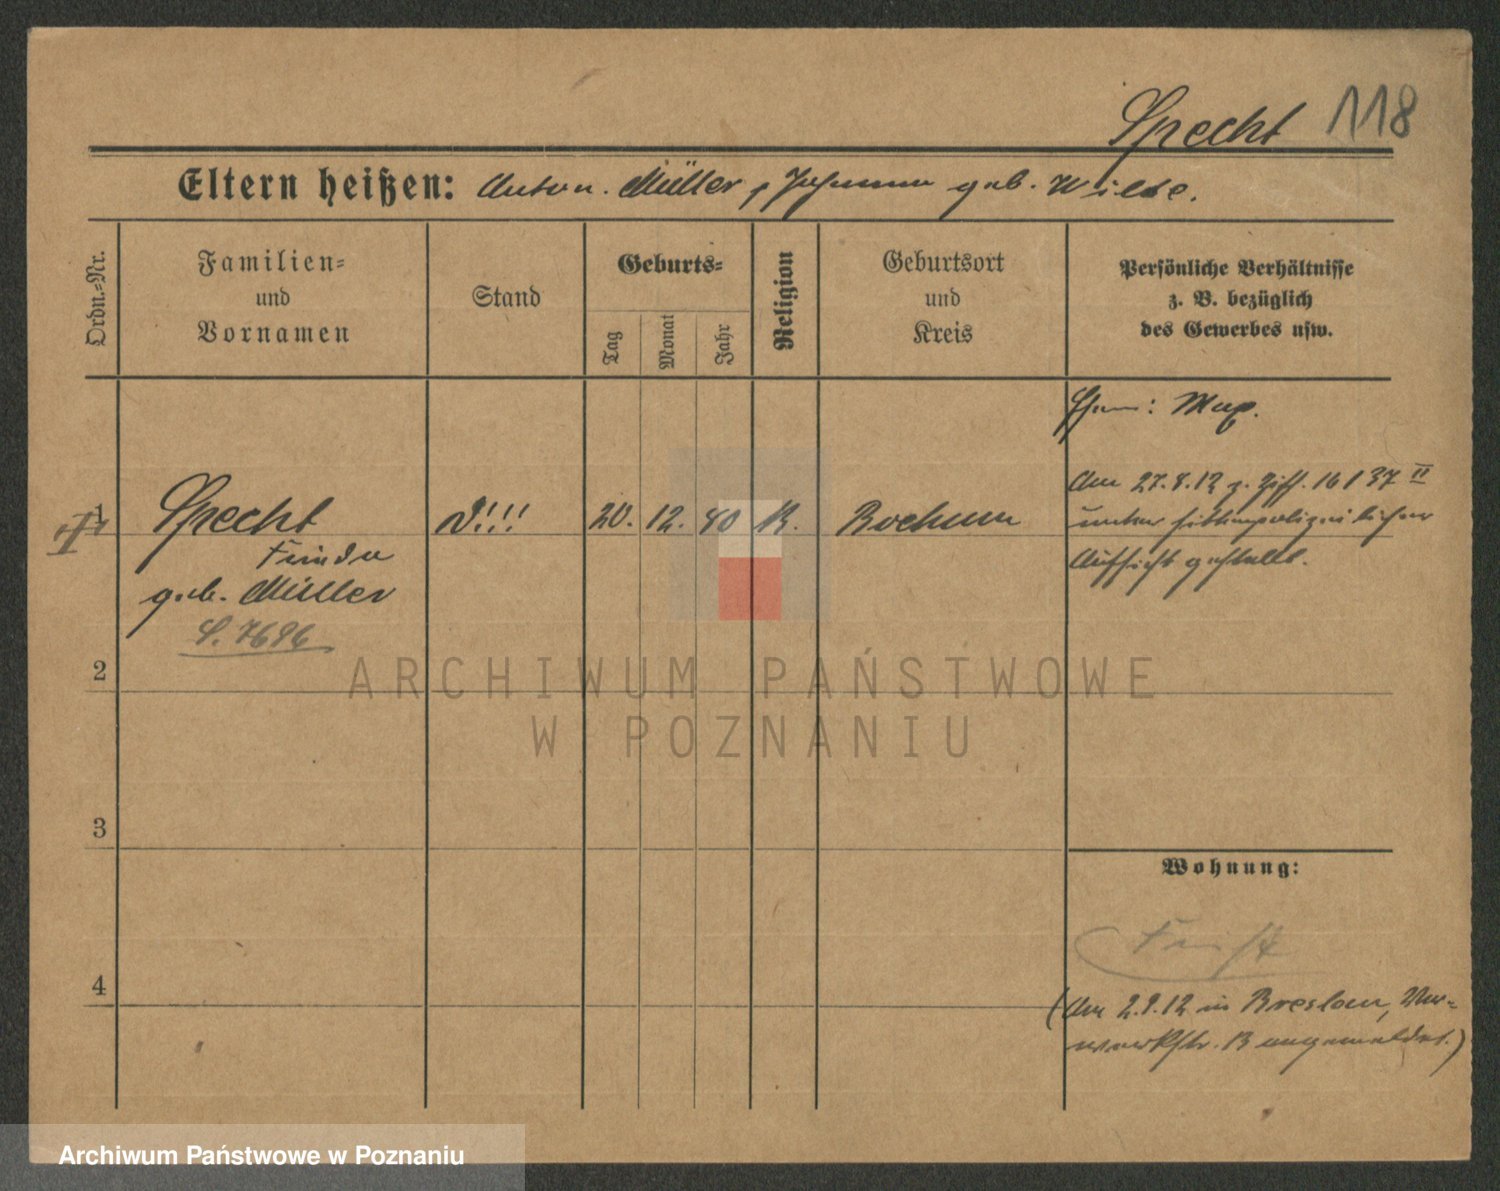 Specht 118
Eltern heißen: Anton Müller, Johanna geb. Wilke.
Ordn.-Nr.
Familien-
und
Vornamen
Stand
Geburts-
Tag
Monat
Jahr
Religion
Geburtsort
und
Kreis
Persönliche Verhältnisse
z. B. bezüglich
des Gewerbes usw.
1
Specht
geb. Müller
S. 7686
20. 12. 80 K. Bochum
Am 27.8.12 z. Ziff. 16 / 37 II
unter sittenpolizeilicher
Aufsicht gestellt.
2
3
4
Wohnung:
(Am 2.9.12 in Breslau,
angemeldet.)
ARCHIWUM PAŃSTWOWE
W POZNANIU
Archiwum Państwowe w Poznaniu